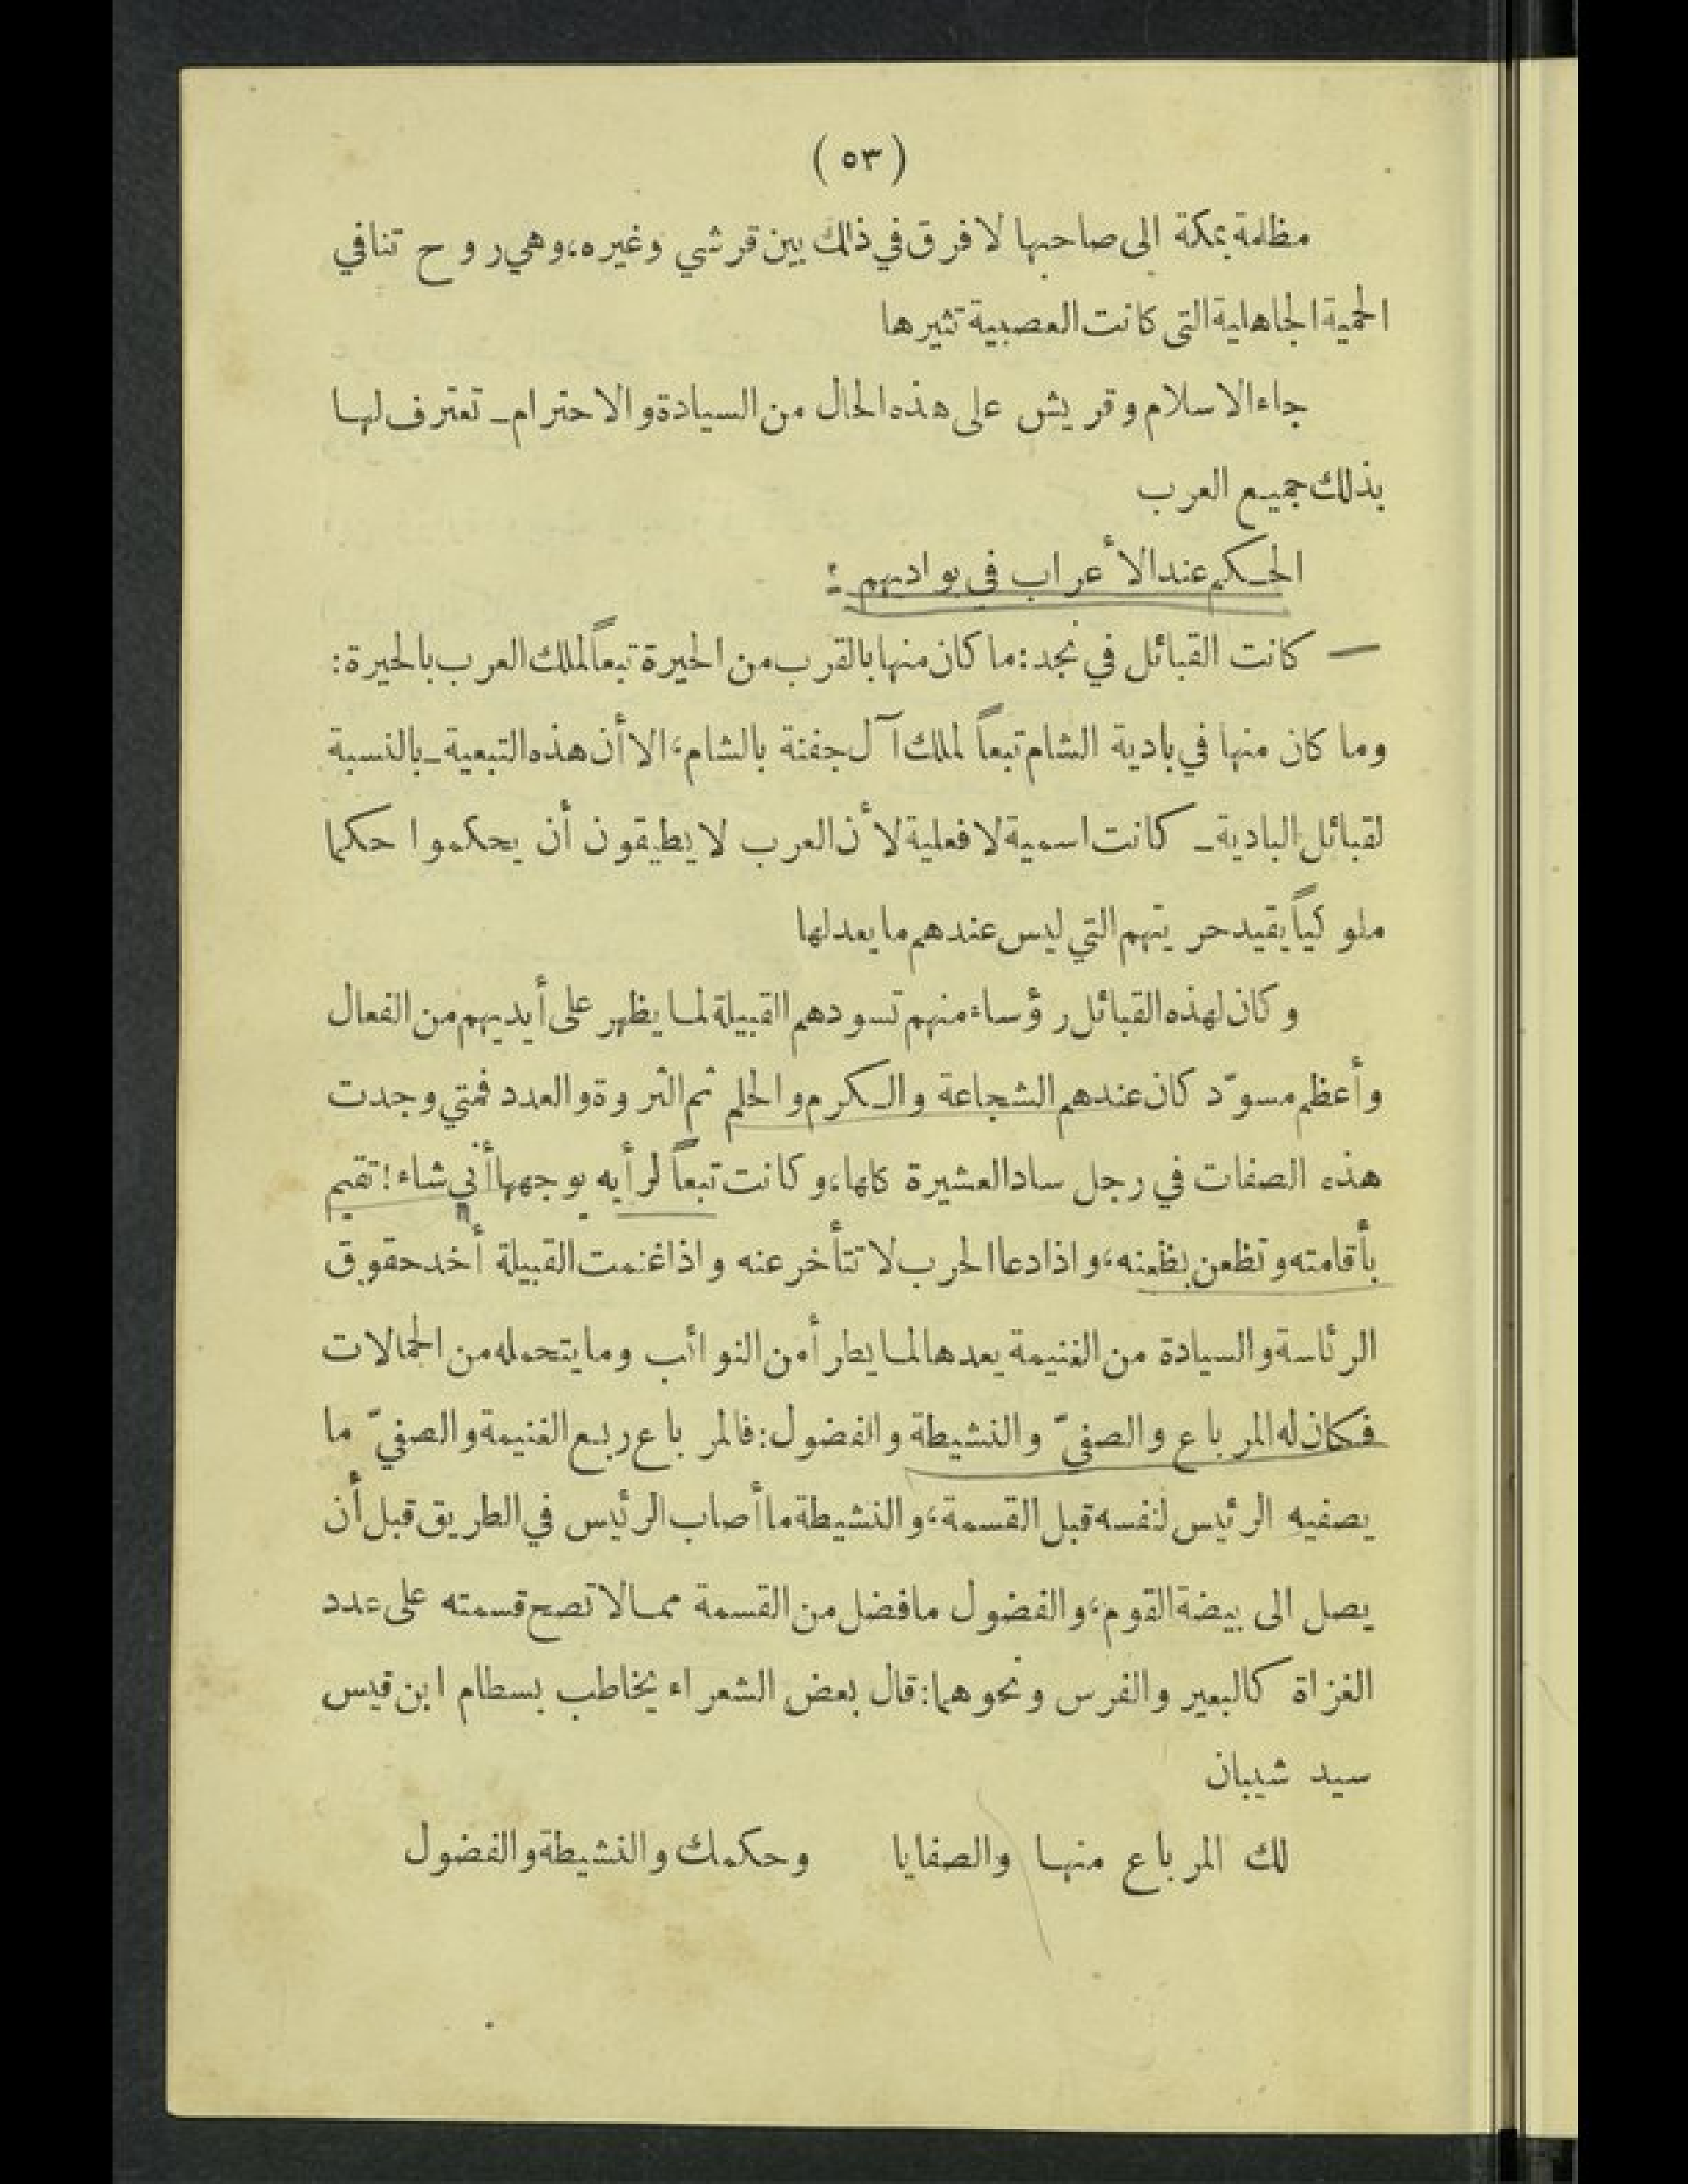 (٥٣)
مظلمة بمكة الى صاحبها لا فرق في ذلك بين قرشي وغيره؛ وهي روح تنافي
الحمية الجاهلية التى كانت العصبية تثيرها
جاء الاسلام وقريش على هذه الحال من السيادة والاحترام ــ تعترف لها
بذلك جميع العرب
الحكم عند الأعراب في بواديهم :
— كانت القبائل في نجد: ما كان منها بالقرب من الحيرة تبعاً لملك العرب بالحيرة:
وما كان منها في بادية الشام تبعاً لملك آل جفنة بالشام؛ الا أن هذه التبعية ــ بالنسبة
لقبائل البادية ــ كانت اسمية لا فعلية لأن العرب لا يطيقون أن يحكموا حكما
ملوكياً يقيد حريتهم التي ليس عندهم ما يعدلها
وكان لهذه القبائل رؤساء منهم تسودهم القبيلة لما يظهر على أيديهم من الفعال
وأعظم مسوّد كان عندهم الشجاعة والكرم والحلم ثم الثروة والعدد فمتي وجدت
هذه الصفات في رجل ساد العشيرة كلها؛ وكانت تبعاً لرأيه يوجهها أني شاء! تقيم
بأقامته وتظعن بظعنه؛ واذا دعا الحرب لا تتأخر عنه واذا غنمت القبيلة أخد حقوق
الرئاسة والسيادة من الغنيمة يعدها لما يطرأ من النوائب وما يتحمله من الحمالات
فكان له المرباع والصفيّ والنشيطة والفضول: فالمرباع ربع الغنيمة والصفيّ ما
يصفيه الرئيس لنفسه قبل القسمة؛ والنشيطة ما أصاب الرئيس في الطريق قبل أن
يصل الى بيضة القوم؛ والفضول ما فضل من القسمة مما لا تصح قسمته على عدد
الغزاة كالبعير والفرس ونحوهما: قال بعض الشعراء يخاطب بسطام ابن قيس
سيد شيبان
لك المرباع منها والصفايا وحكمك والنشيطة والفضول